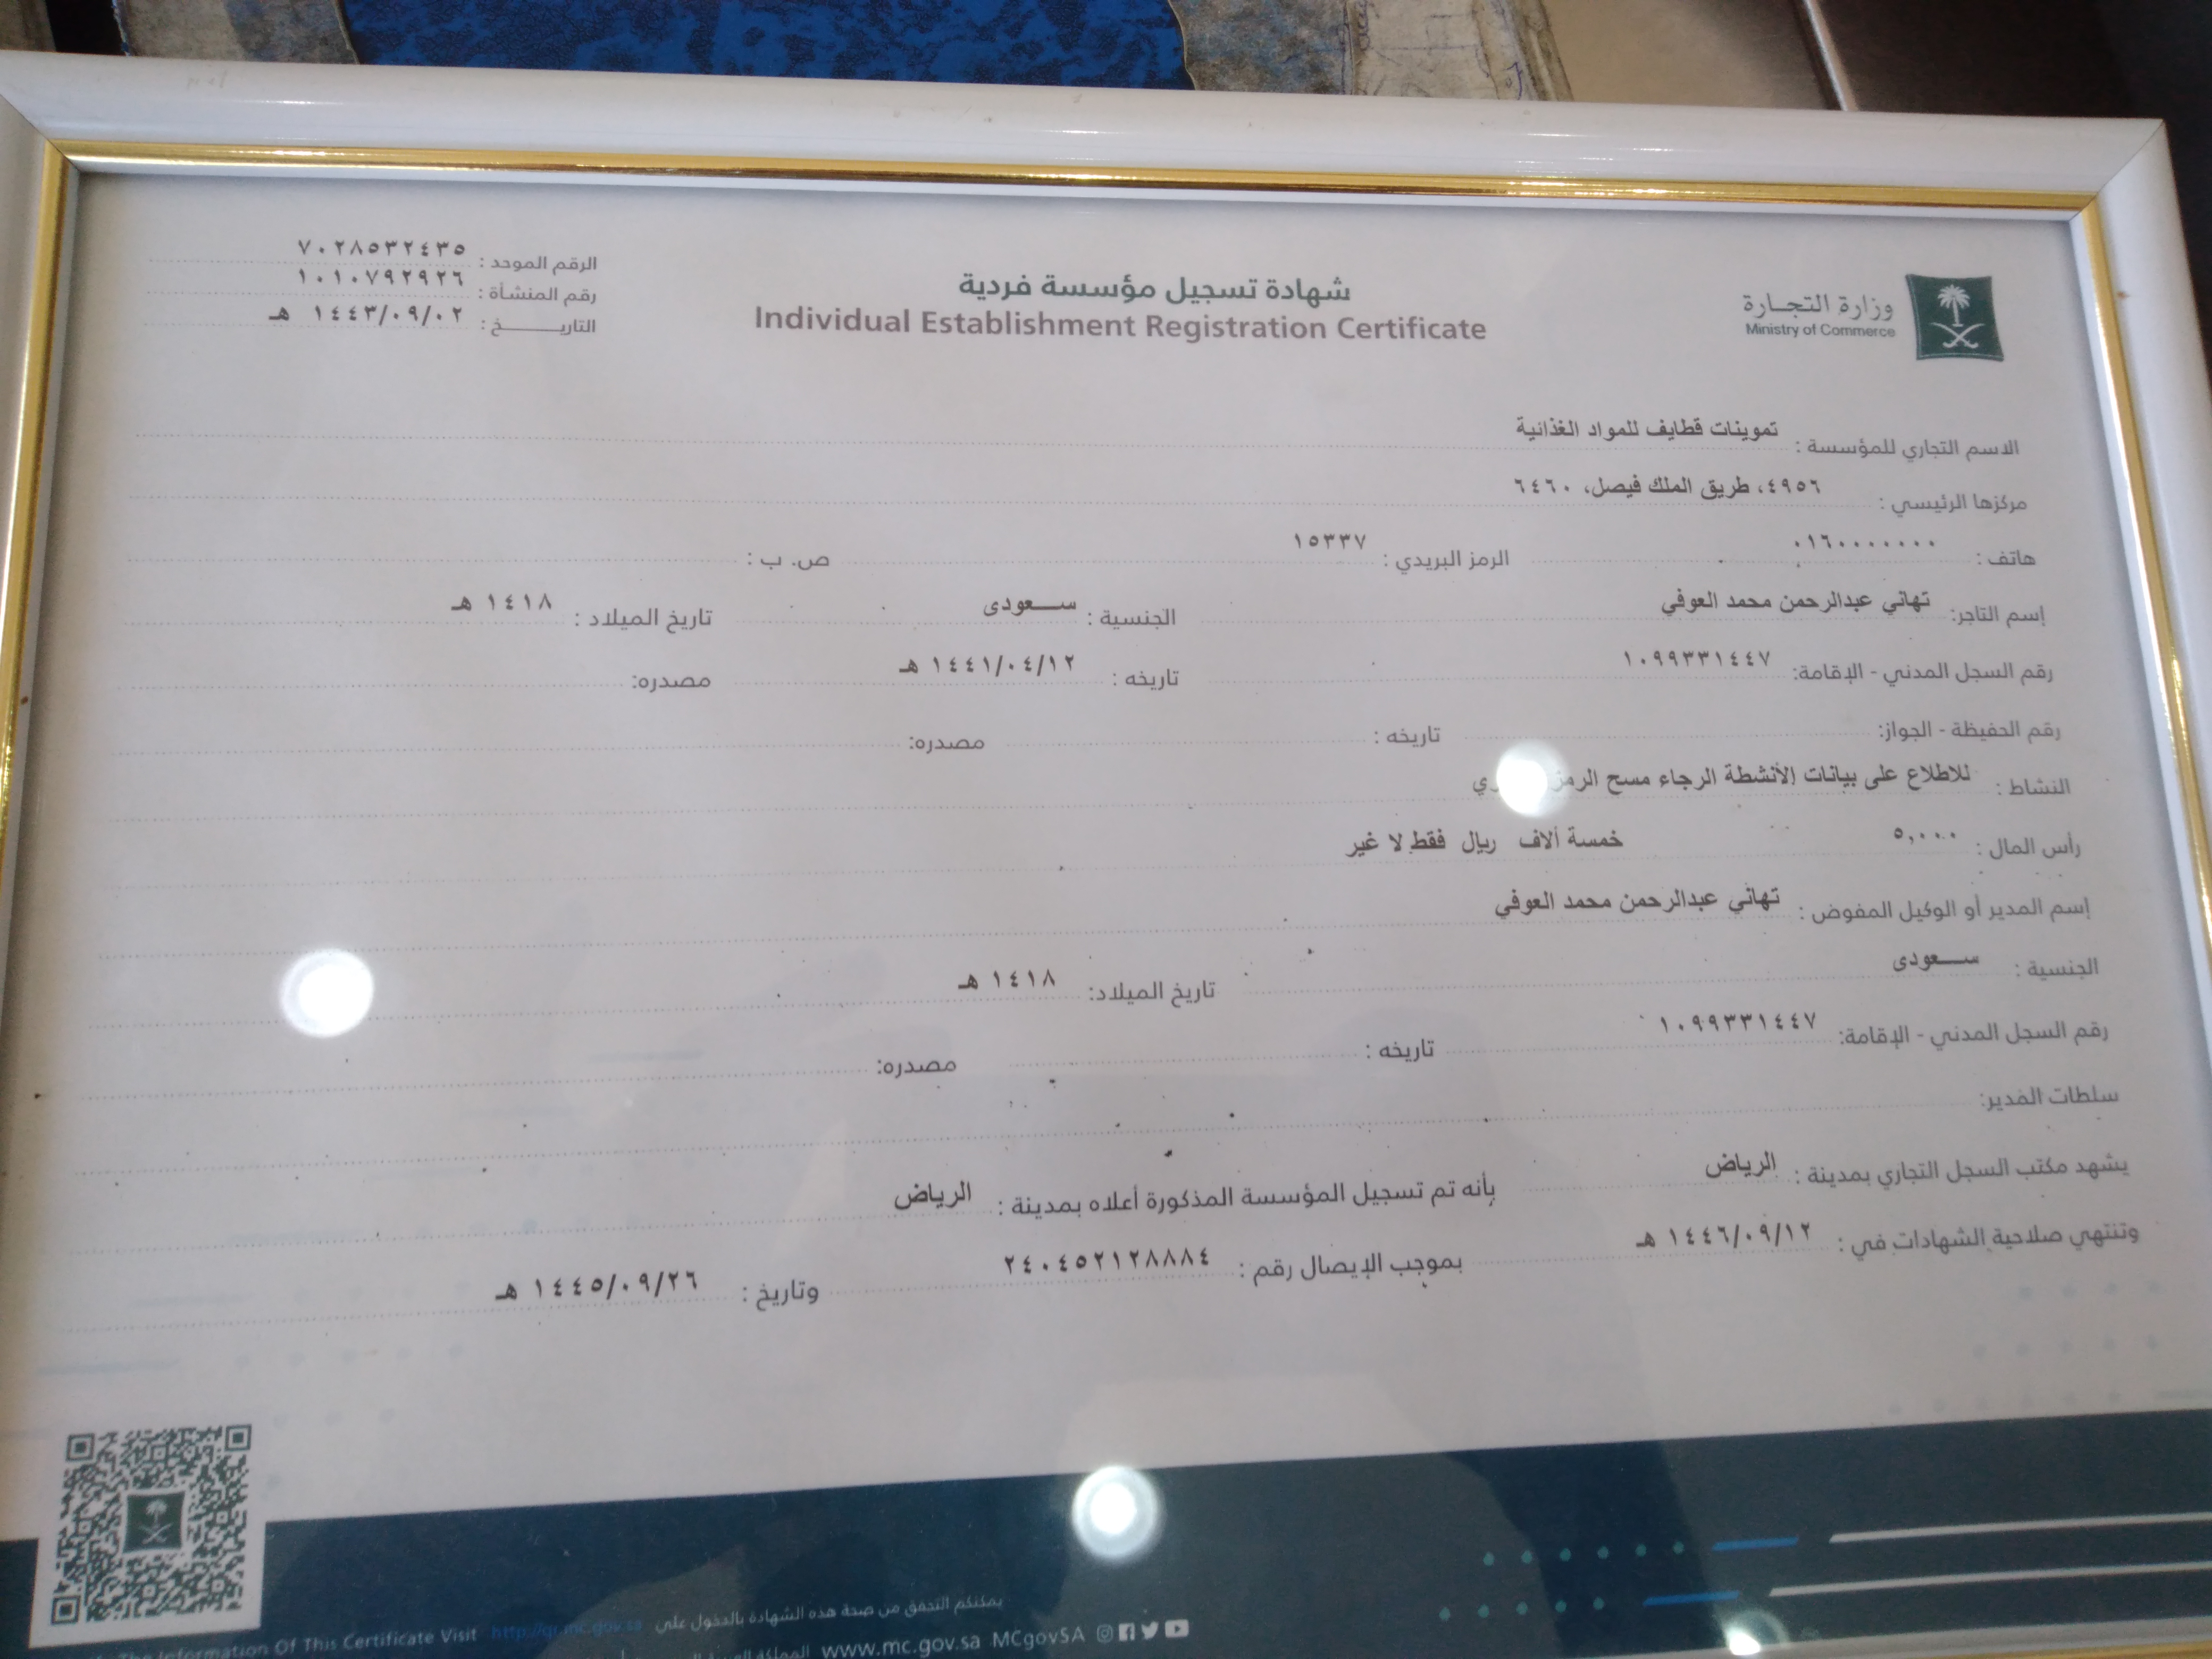 وزارة التجارة
Ministry of Commerce
شهادة تسجيل مؤسسة فردية
Individual Establishment Registration Certificate
الرقم الموحد : ٧٠٢٨٥٣٢٤٣٥
رقم المنشأة : ١٠١٠٧٩٢٩٢٦
التاريـــــــخ : ١٤٤٣/٠٩/٠٢ هـ
الاسم التجاري للمؤسسة : تموينات قطايف للمواد الغذائية
مركزها الرئيسي : ٤٩٥٦، طريق الملك فيصل، ٦٤٦٠
هاتف : ٠١٦٠٠٠٠٠٠٠ الرمز البريدي : ١٥٣٣٧ ص. ب :
إسم التاجر: تهاني عبدالرحمن محمد العوفي الجنسية : ســـعودى تاريخ الميلاد : ١٤١٨ هـ
رقم السجل المدني - الإقامة: ١٠٩٩٣٣١٤٤٧ تاريخه : ١٤٤١/٠٤/١٢ هـ مصدره:
رقم الحفيظة - الجواز: تاريخه : مصدره:
النشاط : للاطلاع على بيانات الأنشطة الرجاء مسح الرمز
رأس المال : ٥,٠٠٠ خمسة ألاف ريال فقط لا غير
إسم المدير أو الوكيل المفوض : تهاني عبدالرحمن محمد العوفي
الجنسية : ســـعودى تاريخ الميلاد: ١٤١٨ هـ
رقم السجل المدني - الإقامة: ١٠٩٩٣٣١٤٤٧ تاريخه : مصدره:
سلطات المدير:
يشهد مكتب السجل التجاري بمدينة : الرياض بأنه تم تسجيل المؤسسة المذكورة أعلاه بمدينة : الرياض
وتنتهي صلاحية الشهادات في : ١٤٤٦/٠٩/١٢ هـ بموجب الإيصال رقم : ٢٤٠٤٥٢١٢٨٨٨٤ وتاريخ : ١٤٤٥/٠٩/٢٦ هـ
يمكنكم التحقق من صحة هذه الشهادة بالدخول على http://qr.mc.gov.sa
The Information Of This Certificate Visit
المملكة www.mc.gov.sa MCgovSA